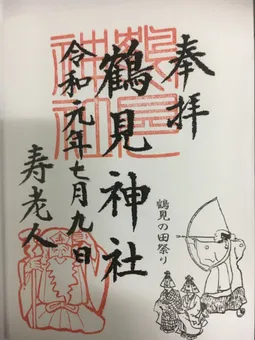 奉拝
鶴見神社
令和元年七月九日
寿老人
鶴見の田祭り